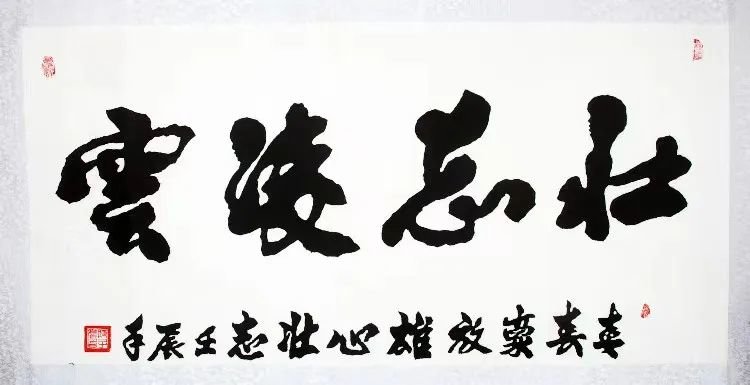 壮志凌雲
豪放雄心壮志壬辰年